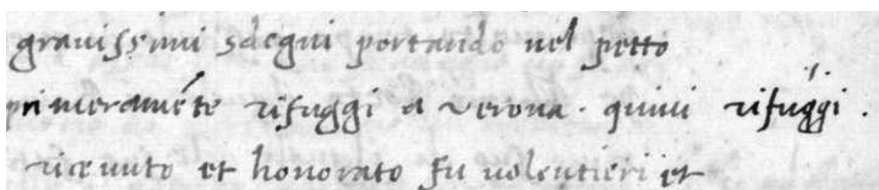 grauissimi sdegni portando nel petto
primeramẽte rifuggi a verona. quiui rifuggí.
riceuuto et honorato fu uolentieri et